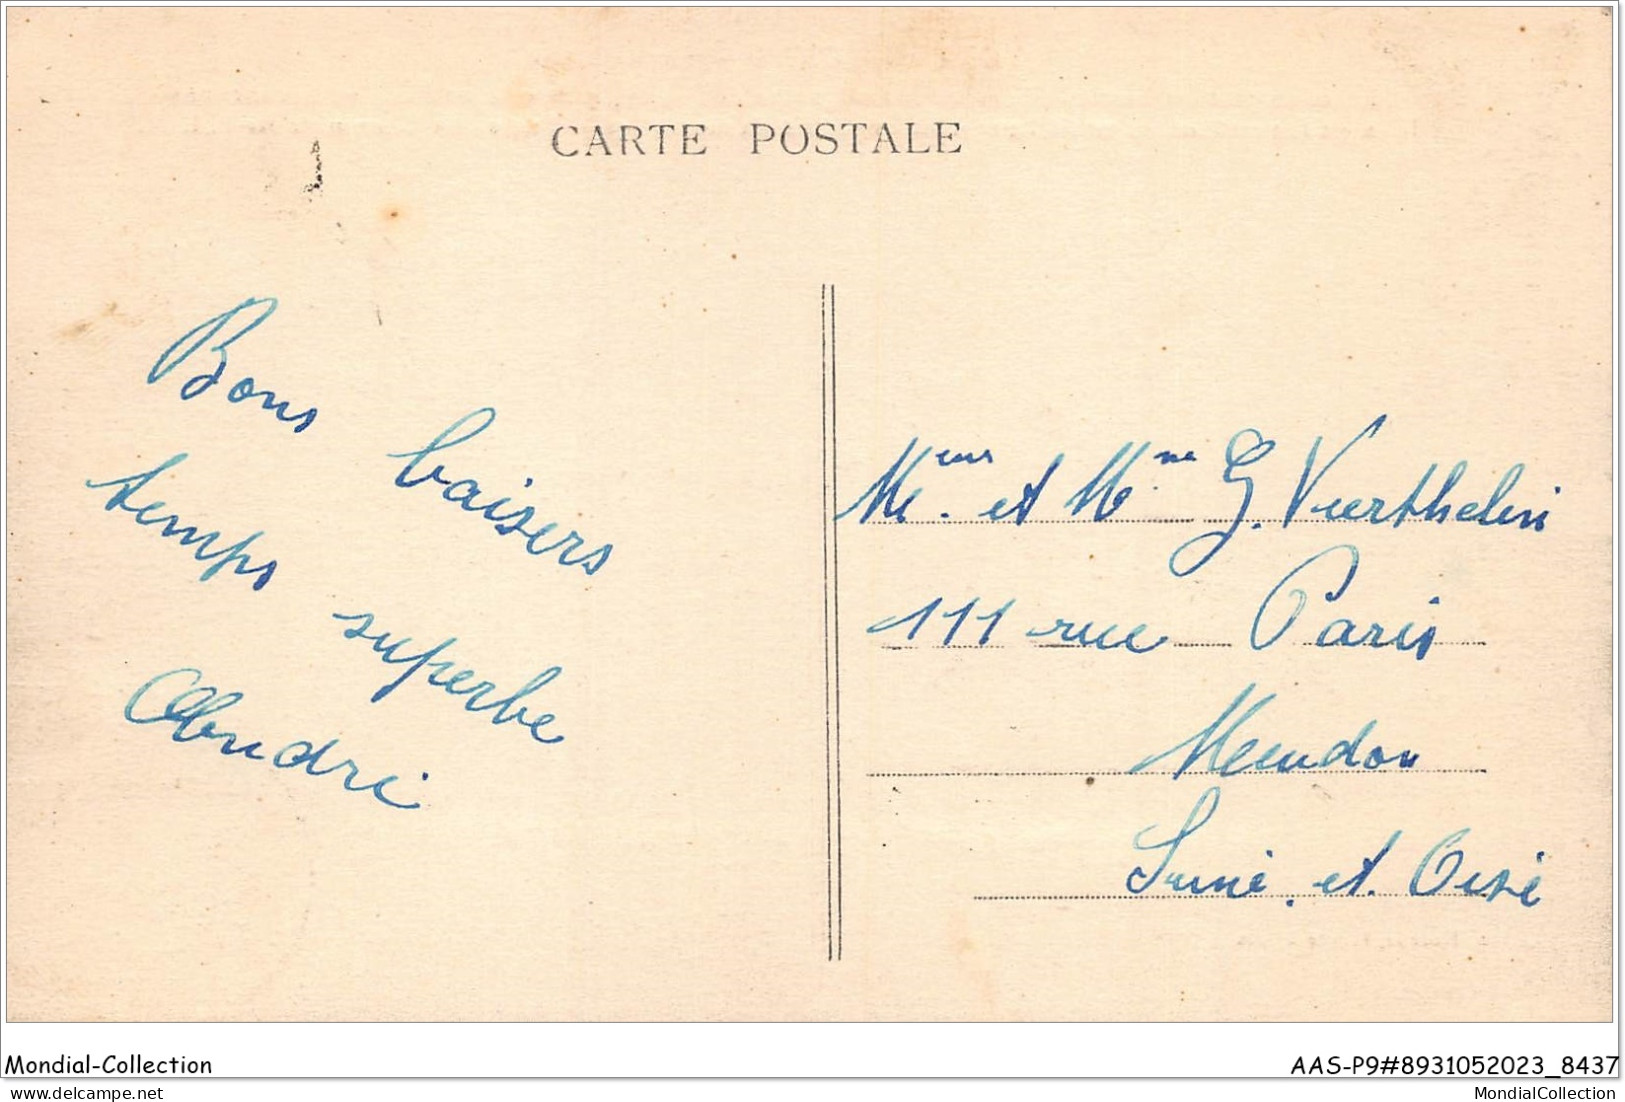 CARTE POSTALE
Bons baisers
temps superbe
Andri
Meur. et Mme. G. Vierthelin
111 rue Paris
Meudon
Seine. et. Oise
Mondial-Collection
AAS-P9#8931052023_8437
www.delcampe.net
MondialCollection